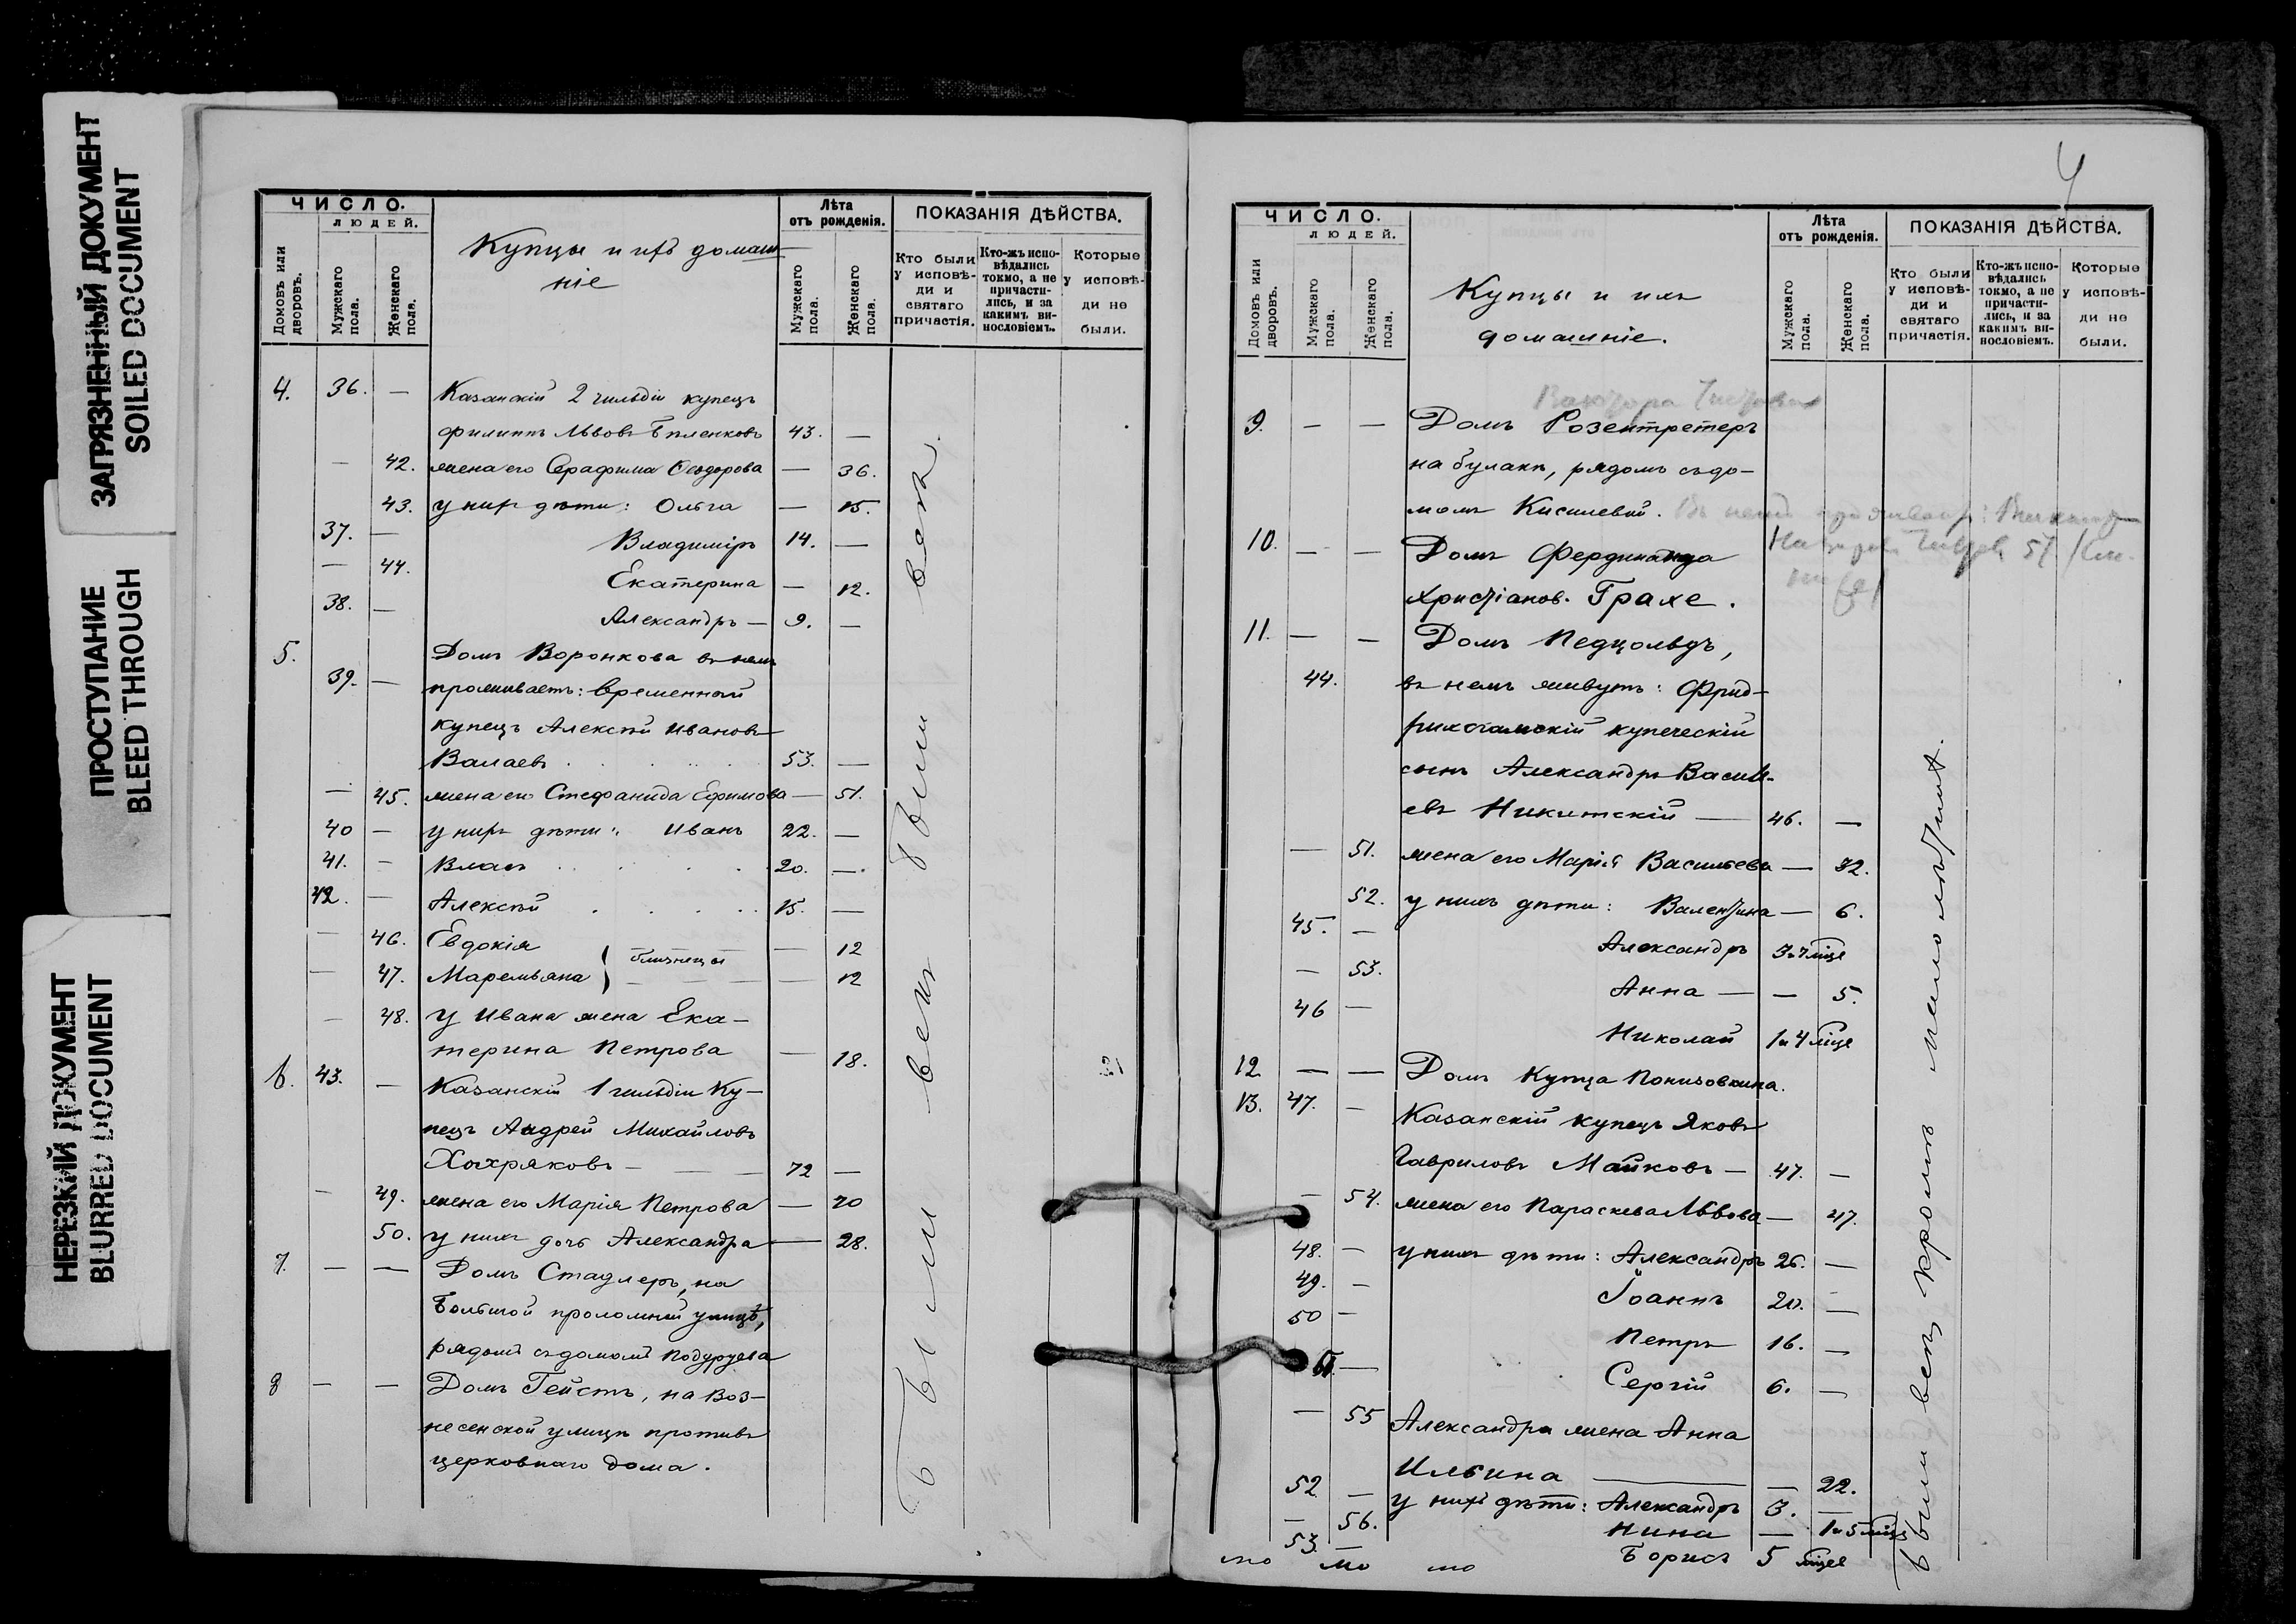 ЗАГРЯЗНЕННЫЙ ДОКУМЕНТ
SOILED DOCUMENT
ПРОСТУПАНИЕ
BLEED THROUGH
НЕРЕЗКИЙ ДОКУМЕНТ
BLURRED DOCUMENT
ЧИСЛО.
людей.
Домовъ или дворовъ.
Мужскаго пола.
Женскаго пола.
Купцы и ихъ домаш-
ніе
Лѣта
отъ рожденія.
Мужскаго пола.
Женскаго пола.
ПОКАЗАНІЯ ДѢЙСТВА.
Кто были у исповѣ-ди и святаго причастія.
Кто-жъ испо-вѣдались токмо, а не причасти-лись, и за какимъ ви-нословіемъ.
Которые у исповѣ-ди не были.
4. 36. — Казанскій 2 гильдіи купецъ
Филиппъ Львовъ 43. —
— 42. жена его Серафима Ѳеодорова — 36.
43. у нихъ дѣти: Ольга — 15.
37. — Владиміръ 14. —
— 44. Екатерина — 12.
38. — Александръ — 9. —
5. Домъ Воронкова въ немъ
39. — проживаетъ: временный
купецъ Алексѣй Ивановъ
Валаевъ 53. —
— 45. жена его Стефанида Ефимова — 51.
40 — у нихъ дѣти: Иванъ 22. —
41. — Власъ 20. —
42. — Алексѣй 15. —
— 46. Евдокія близнецы — 12
— 47. Маремьяна — 12
— 48. у Ивана жена Ека-
терина Петрова — 18.
6. 43. — Казанскій 1 гильдіи Ку-
пецъ Андрей Михайловъ
Хохряковъ — 72 —
— 49. жена его Марія Петрова — 70
50. у нихъ дочь Александра — 28.
7. — — Домъ Стадлеръ, на
Большой проломной улицѣ,
рядомъ съ домомъ Подуруева
8 — — Домъ Гейстъ, на Воз-
несенской улицѣ противъ
церковнаго дома.
Были всѣ
4
ЧИСЛО.
людей.
Домовъ или дворовъ.
Мужскаго пола.
Женскаго пола.
Купцы и ихъ
домашніе.
Лѣта
отъ рожденія.
Мужскаго пола.
Женскаго пола.
ПОКАЗАНІЯ ДѢЙСТВА.
Кто были у исповѣ-ди и святаго причастія.
Кто-жъ испо-вѣдались токмо, а не причасти-лись, и за какимъ ви-нословіемъ.
Которые у исповѣ-ди не были.
9. — — Домъ Розентретеръ
на булакѣ, рядомъ съ до-
момъ Киселевой.
10. — — Домъ Фердинанда
Христіанов. Грахе.
11. — — Домъ Педцольдъ,
44. въ немъ живутъ: Фрид-
рихсгамскій купеческій
сынъ Александръ Василь-
евъ Никитскій — 46. —
— 51. жена его Марія Васильева — 32.
52. у нихъ дѣти: Валентина — 6.
45. — Александръ 3 и 7 мѣце
— 53. Анна — — 5.
46 — Николай 1 и 4 мѣце
12 — — Домъ Купца Понизовкина.
13. 47. — Казанскій купецъ Яковъ
Гавриловъ Майковъ — 47. —
— 54. жена его Параскева Львова — 47.
48. — у нихъ дѣти: Александръ 26. —
49. — Іоаннъ 20. —
50 — Петръ 16. —
51. — Сергій 6. —
— 55 Александра жена Анна
Ильина — 22.
52 — у нихъ дѣти: Александръ 3. —
— 56. Нина — 1 и 5 мѣце
53. — Борисъ 5 мѣце
Были всѣ, кромѣ малолѣтнихъ.